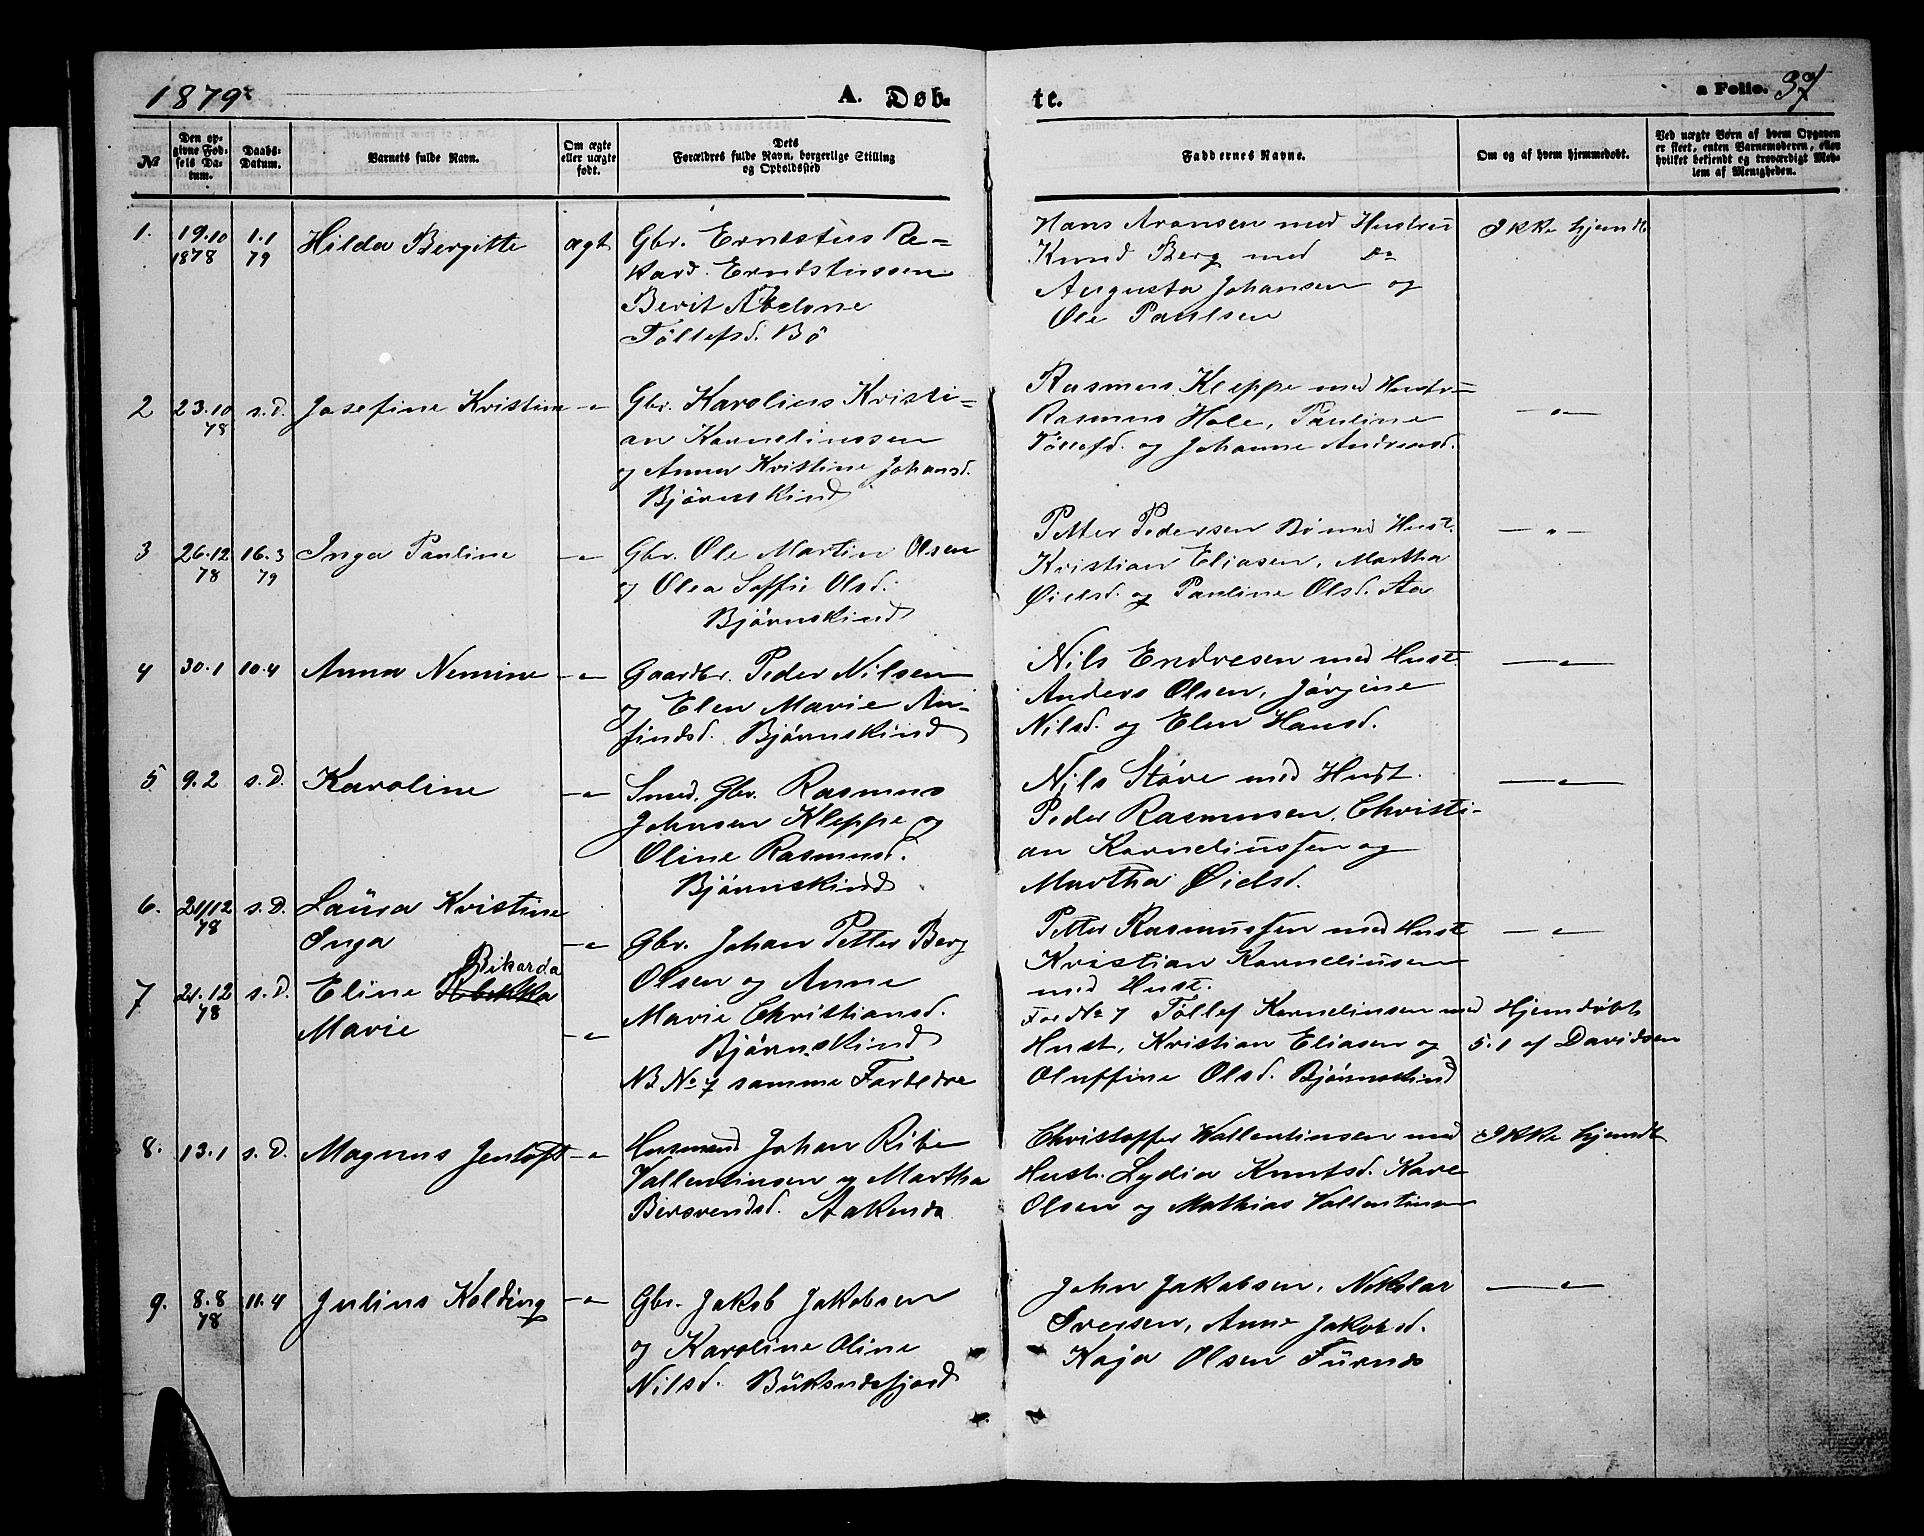 1879
A. Døb-
te.
a Folio. 37
№
Den op-
givne Fød-
sels Da-
tum.
Daabs-
Datum.
Barnets fulde Navn.
Om ægte
eller uægte
født.
Dets
Forældres fulde Navn, borgerlige Stilling
og Opholdssted
Faddernes Navne.
Om og af hvem hjemmedøbt.
Ved uægte Børn af hvem Opgaven
er skeet, enten Barnemoderen, eller
hvilket bekjendt og troværdigt Med-
lem af Menigheden.
1.
19.10
1878
1.1
79
Hilda Bergitte
ægt
Gbr. Ernestus Re-
kard. Erndstussen
Berit Abelone
Töllefsd. Bö
Hans Aronsen med Hustru
Knud Berg med Do
Augusta Johansen og
Ole Paulsen
Ikke hjemdt
2
23.10
78
s. D.
Josefine Kristine
-"-
Gbr. Karolius Kristi-
an Kornelinssen
og Anna Kristine Johansd.
Björnskind
Rasmus Kleppe med Hustr-
Rasmus Hole, Pauline
Töllefsd. og Johanne Andreasd.
-"-
3
26.12
78
16.3
79
Inga Pauline
-"-
Gbr. Ole Martin Olsen
og Olea Soffie Olsd.
Björnskind
Petter Pedersen Bö med Hust.
Kristian Eliasen, Martha
Öielsd. og Pauline Olsd. Aa
-"-
4
30.1
10.4
Anna Nemine
-"-
Gaardbr. Peder Nilsen
og Elen Marie An-
findsd. Björnskind
Nils Endresen med Hust.
Anders Olsen, Jörgine
Nilsd. og Elen Hansd.
-"-
5
9.2
s. D.
Karoline
-"-
Smed. Gbr. Rasmus
Johnsen Kleppe og
Oline Rasmusd.
Björnskind
Nils Störe med Hust.
Peder Rasmussen, Christi-
an Korneliussen og
Martha Öielsd.
-"-
6.
21/12
78
s. D.
Laura Kristine
Inga
-"-
Gbr. Johan Petter Berg
Olsen og Anne
Marie Christiansd.
Björnskind
Petter Rasmussen med Hust
Kristian Korneliusen
med Hust.
-"-
7
21.12
78
s. D.
Rikarda
Eline
Marie
-"-
NB No 7 samme Forældre
For No 7 Töllef Kornelinsen med
Hust, Kristian Eliasen og
Oluffine Olsd. Björnskind
Hjemdöbt
5.1 af Davidsen
8.
13.1
s. D.
Magnus Jentoft
-"-
Husmand Johan Ribe
Vallentinsen og Martha
Bersvendsd. Aakenes
Christoffer Vallentinsen med
Hust. Lydia Knutsd. Kare
Olsen og Mathias Vallentinsen
Ikke hjemdt
9.
8.8
78
11.4
Julius Kolding
-"-
Gbr. Jakob Jakobsen
og Karoline Oline
Nilsd. Buksnesfjord
John Jakobsen, Nikolai
Iversen, Anne Jakobsd.
Kaja Olsen Furnes
-"-